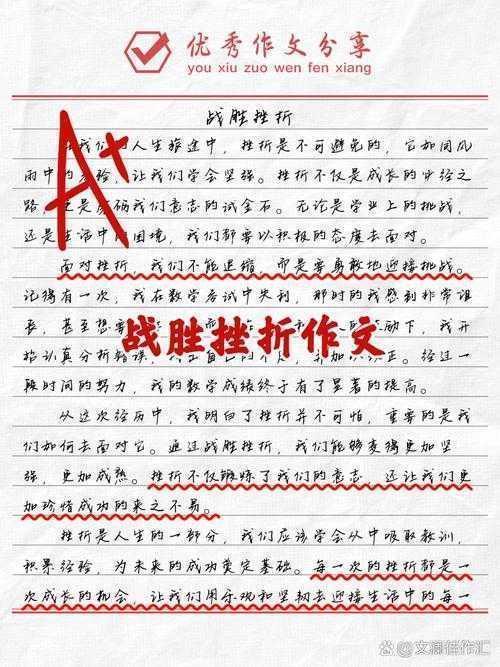 优秀作文分享
you xiu zuo wen fen xiang
战胜挫折
A+
我们 人生旅途中，挫折是不可避免的，它如同风
雨中的 验，让我们学会坚强。挫折不仅是成长的必经之
路， 是 砺我们意志的试金石。无论是学业上的挑战，
还是生活中 困境，我们都要以积极的态度去面对。
面对挫折，我们不能退缩，而是要勇敢地迎接挑战。
记得有一次，我在数学考试中失利，那时的我感到非常沮
丧，甚至想要 励下，我开
战胜挫折作文
始认真分析错误， 自己的 ，并加 正。经过一
段时间的努力，我的数学成绩终于有了显著的提高。
从这次经历中，我明白了挫折并不可怕，重要的是我
们如何去面对它。通过战胜挫折，我们能够变得更加坚
强，更加成熟。挫折不仅锻炼了我们的意志，还让我们更
加珍惜成功的来之不易。
挫折是人生的一部分，我们应该学会从中吸取教训，
积累经验，为未来的成功奠定基础。每一次的挫折都是一
次成长的机会，让我们用乐观和坚韧去迎接生活中的每一
@文澜佰作汇